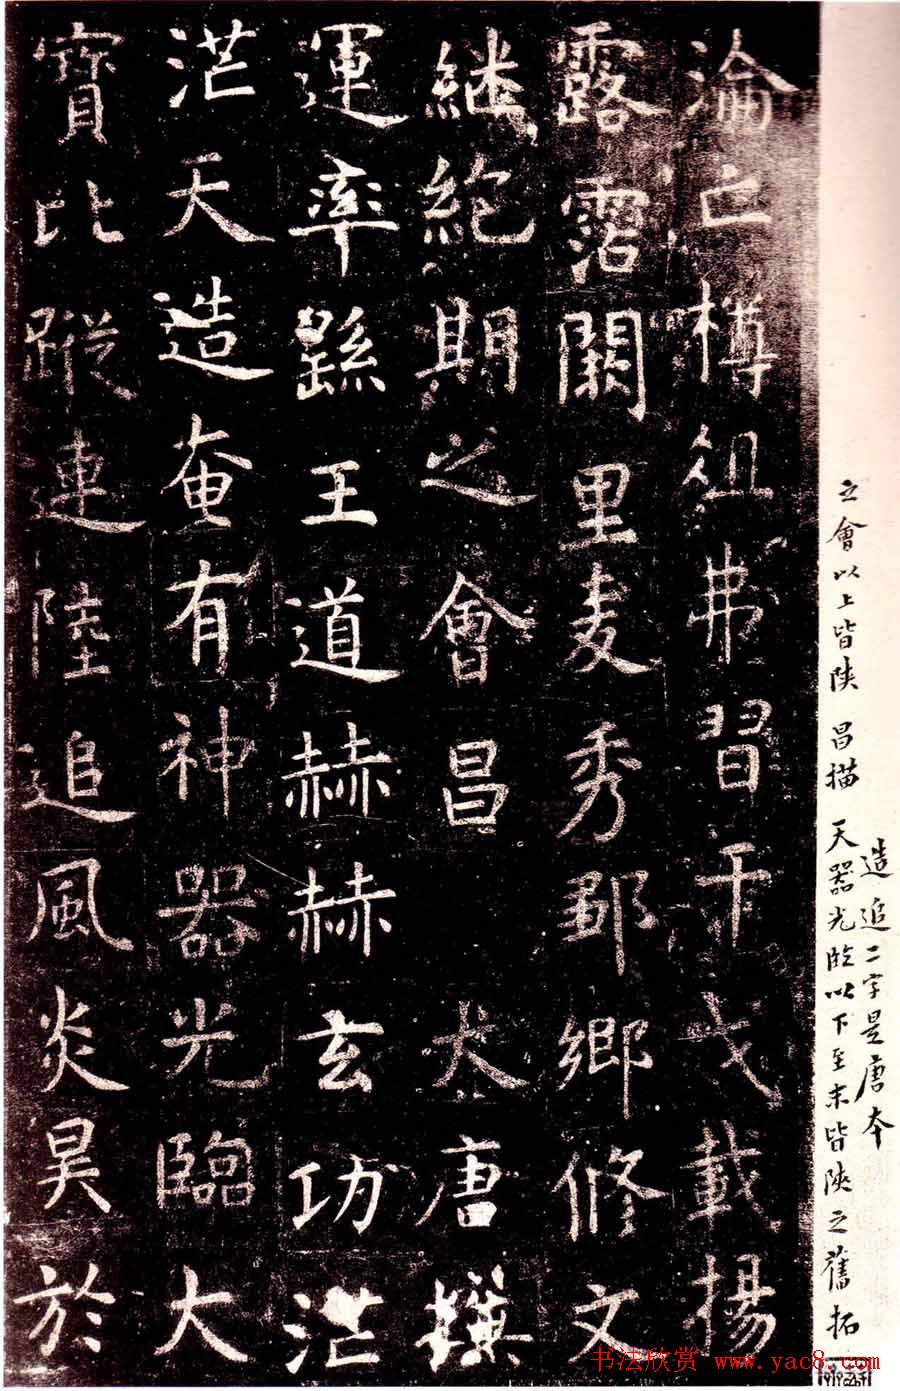 造追二字是唐本
之會以上皆陝 昌描 天器光臨以下至末皆陝之舊拓
淪亡樽俎弗習干戈載揚
露霑闕里麦秀鄒鄉修文
継絶期之會昌 大唐撰
運率繇王道赫赫玄功茫
茫天造奄有神器光臨大
寶比蹤連陸追風炎昊於
书法欣赏 www.yac8.com